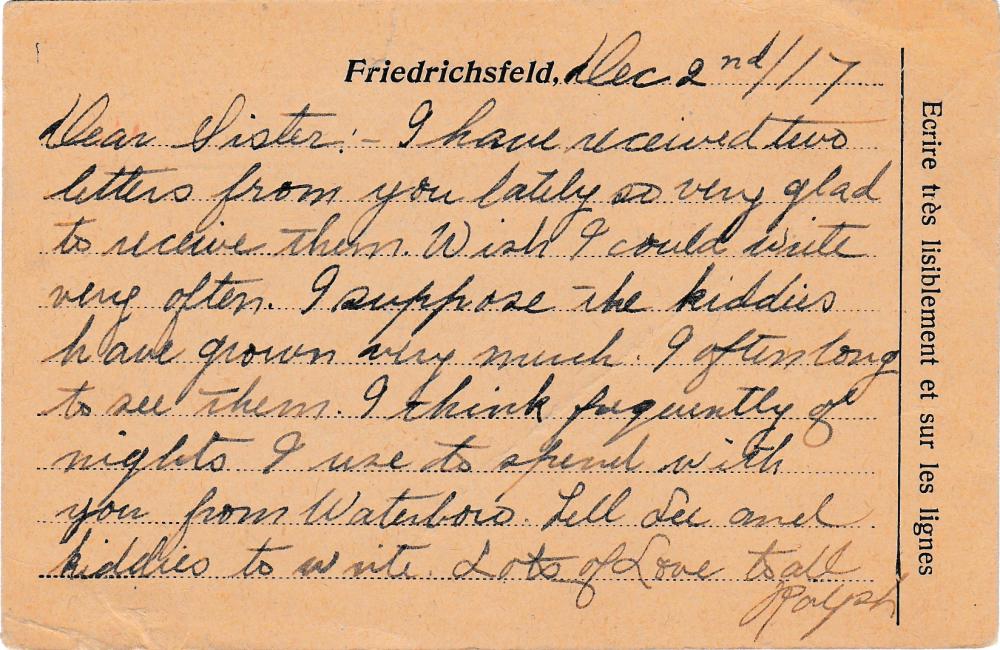 Friedrichsfeld, Dec 2nd/17
Dear Sister:- I have received two
letters from you lately so very glad
to receive them. Wish I could write
very often. I suppose the kiddies
have grown very much. I often long
to see them. I think frequently of
nights I use to spend with
you from Waterboro. Tell Lee and
kiddies to write. Lots of Love to all
Ralph
Ecrire très lisiblement et sur les lignes